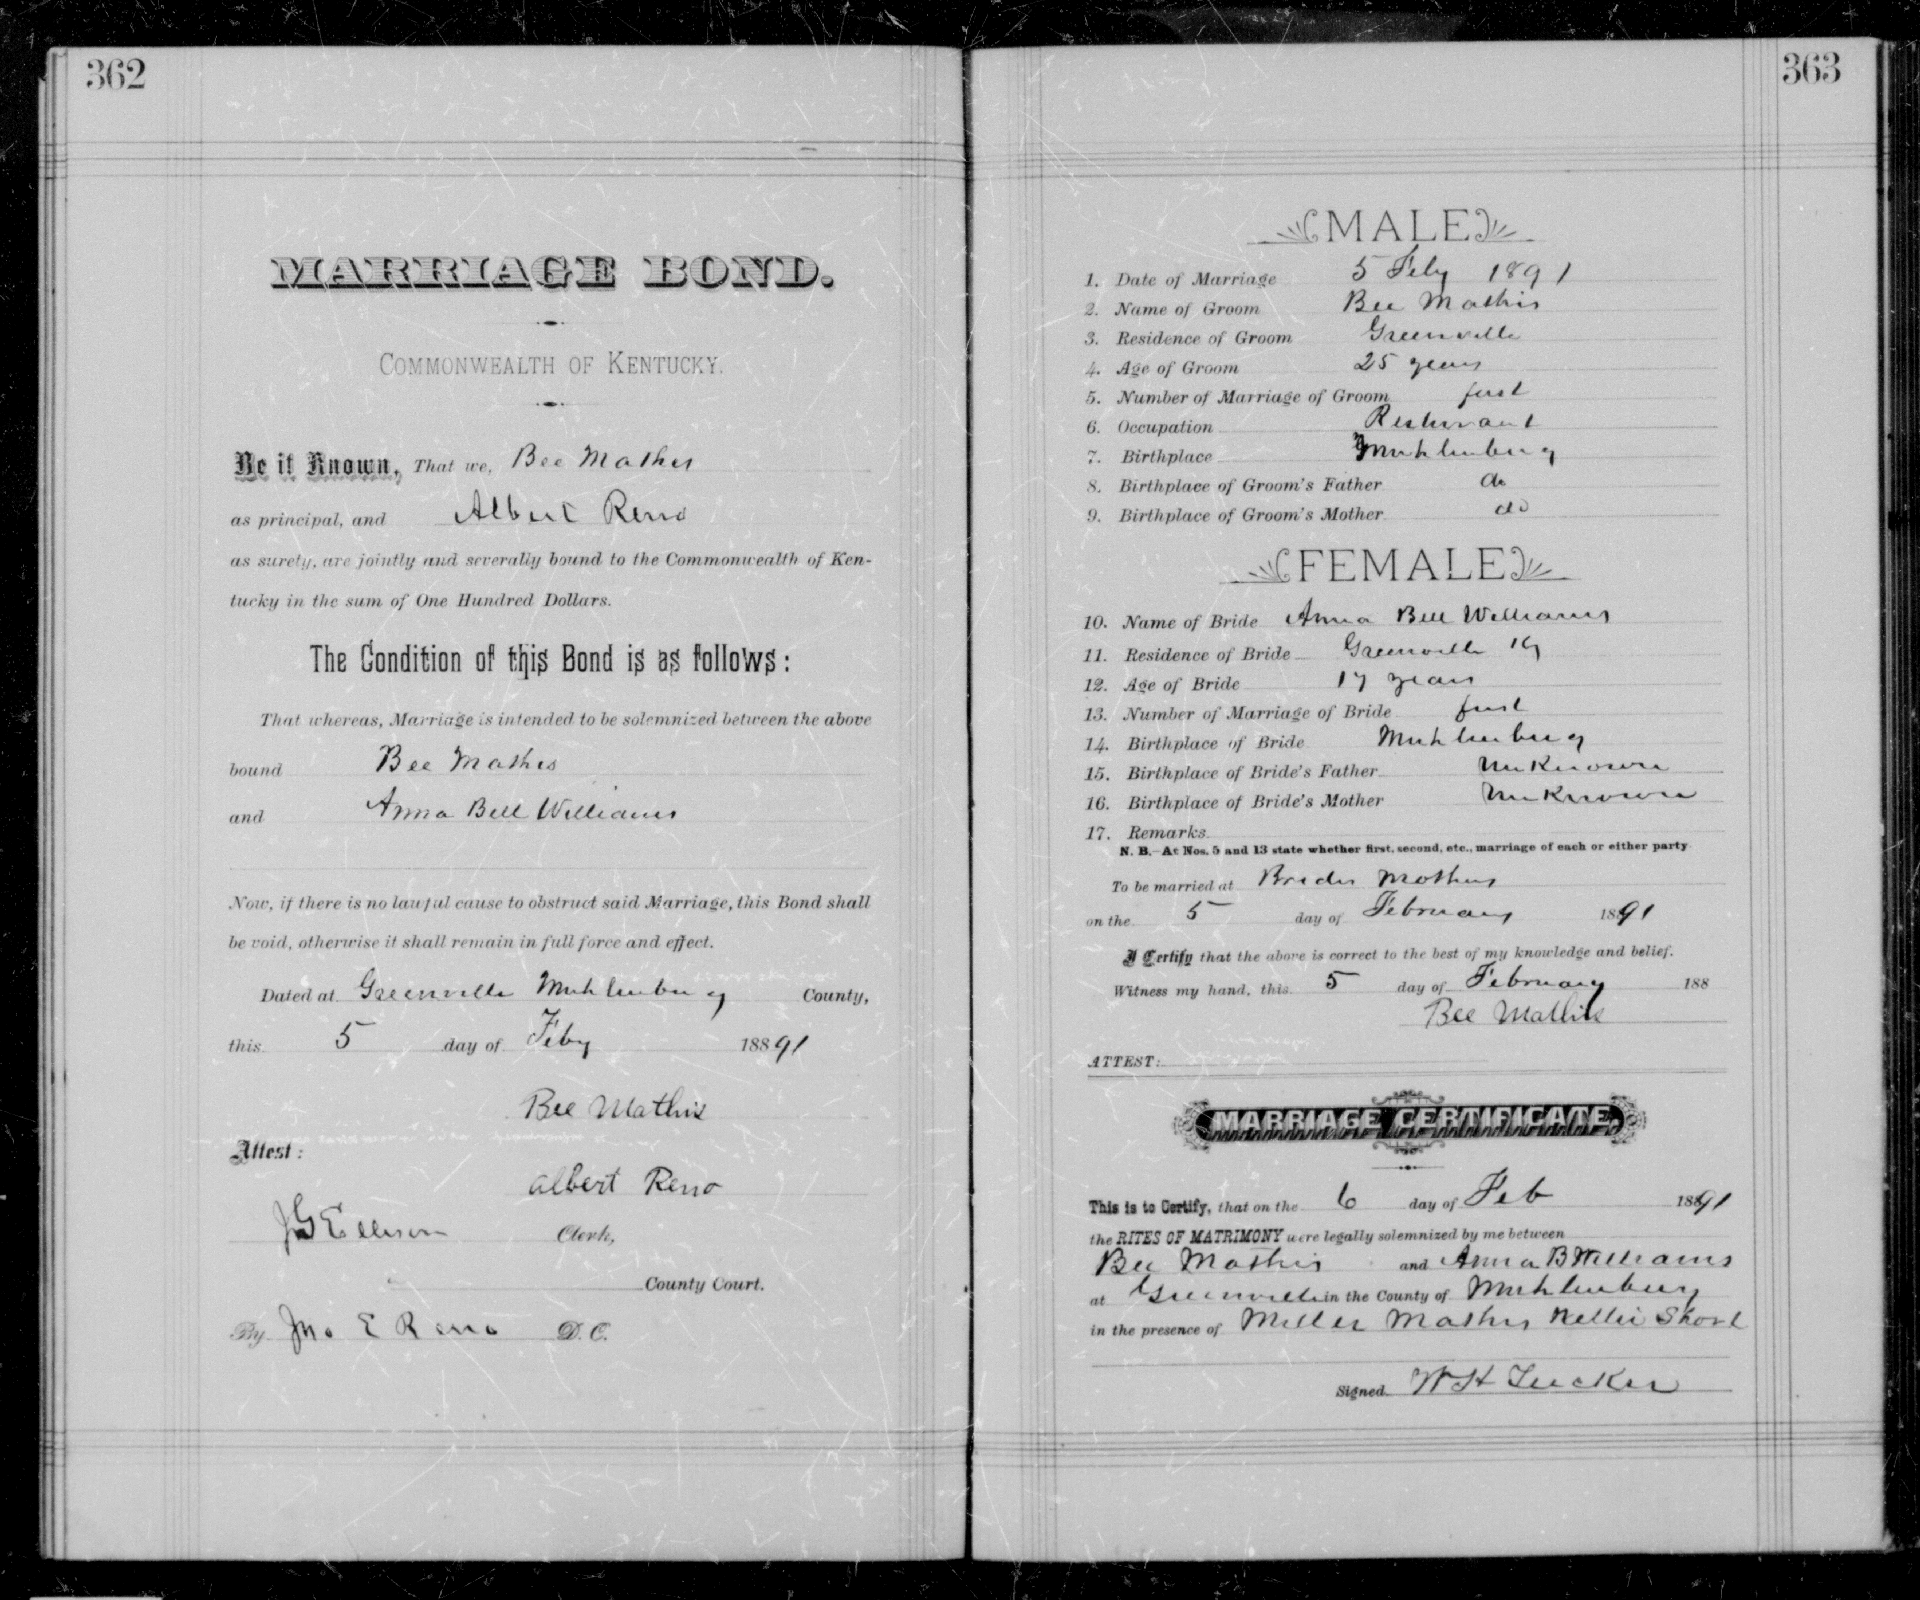 362
MARRIAGE BOND.
COMMONWEALTH OF KENTUCKY.
Be it Known, That we, Bee Mathis
as principal, and Albert Reno
as surety, are jointly and severally bound to the Commonwealth of Ken-
tucky in the sum of One Hundred Dollars.
The Condition of this Bond is as follows:
That whereas, Marriage is intended to be solemnized between the above
bound Bee Mathis
and Anna Bell Williams
Now, if there is no lawful cause to obstruct said Marriage, this Bond shall
be void, otherwise it shall remain in full force and effect.
Dated at Greenville Muhlenburg County,
this 5 day of Feby 18891
Bee Mathis
Attest:
Albert Reno
JG Ellison Clerk,
County Court.
By Jno E Reno D. C.
363
MALE
1. Date of Marriage 5 Feby 1891
2. Name of Groom Bee Mathis
3. Residence of Groom Greenville
4. Age of Groom 25 years
5. Number of Marriage of Groom first
6. Occupation Resturant
7. Birthplace Muhlenburg
8. Birthplace of Groom's Father do
9. Birthplace of Groom's Mother do
FEMALE
10. Name of Bride Anna Bell Williams
11. Residence of Bride Greenville Ky
12. Age of Bride 17 years
13. Number of Marriage of Bride first
14. Birthplace of Bride Muhlenburg
15. Birthplace of Bride's Father Unknown
16. Birthplace of Bride's Mother Unknown
17. Remarks
N. B.—At Nos. 5 and 13 state whether first, second, etc., marriage of each or either party
To be married at Brides Mothers
on the 5 day of February 1891
I Certify that the above is correct to the best of my knowledge and belief.
Witness my hand, this 5 day of February 188
Bee Mathis
ATTEST:
MARRIAGE CERTIFICATE.
This is to Certify, that on the 6 day of Feb 1891
the RITES OF MATRIMONY were legally solemnized by me between
Bee Mathis and Anna B Williams
at Greenville in the County of Muhlenburg
in the presence of Miller Mathis Nellie Short
Signed W H Tucker